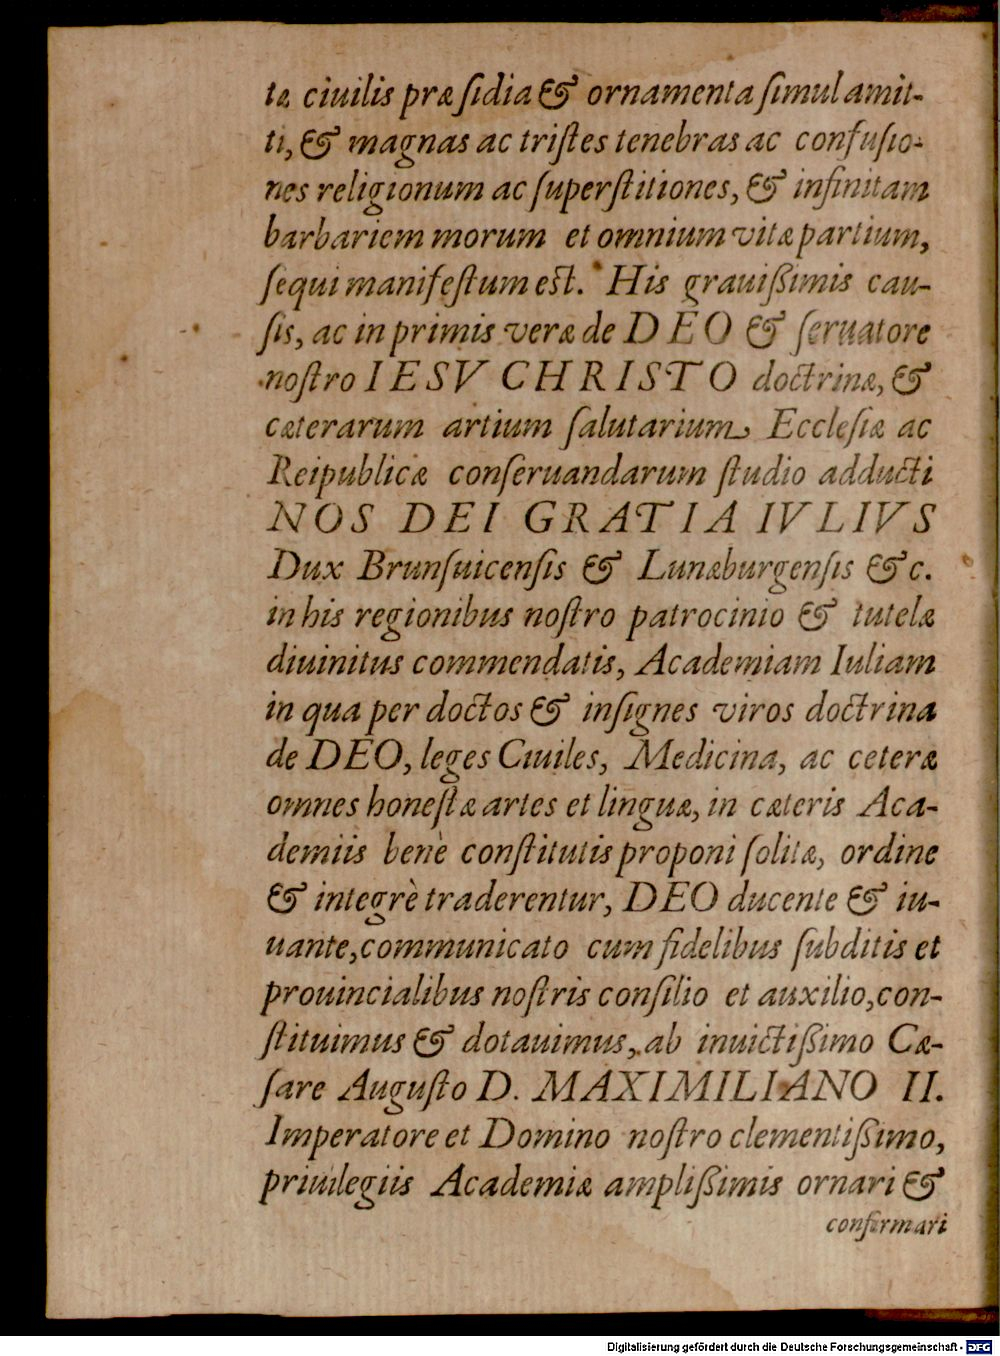 tæ ciuilis præſidia & ornamenta ſimul amit-
ti, & magnas ac triſtes tenebras ac confuſio-
nes religionum ac ſuperſtitiones, & infinitam
barbariem morum et omnium vitæ partium,
ſequi manifeſtum est. His grauißimis cau-
ſis, ac in primis veræ de DEO & ſeruatore
noſtro IESV CHRISTO doctrinæ, &
cæterarum artium ſalutarium Eccleſiæ ac
Reipublicæ conſeruandarum ſtudio adducti
NOS DEI GRATIA IVLIVS
Dux Brunſuicenſis & Lunæburgenſis &c.
in his regionibus noſtro patrocinio & tutelæ
diuinitus commendatis, Academiam Iuliam
in qua per doctos & inſignes viros doctrina
de DEO, leges Ciuiles, Medicina, ac ceteræ
omnes honeſtæ artes et linguæ, in cæteris Aca-
demiis benè conſtitutis proponi ſolitæ, ordine
& integrè traderentur, DEO ducente & iu-
uante, communicato cum fidelibus ſubditis et
prouincialibus noſtris conſilio et auxilio, con-
ſtituimus & dotauimus, ab inuictißimo Cæ-
ſare Auguſto D. MAXIMILIANO II.
Imperatore et Domino noſtro clementißimo,
priuilegiis Academiæ amplißimis ornari &
confirmari
Digitalisierung gefördert durch die Deutsche Forschungsgemeinschaft - DFG